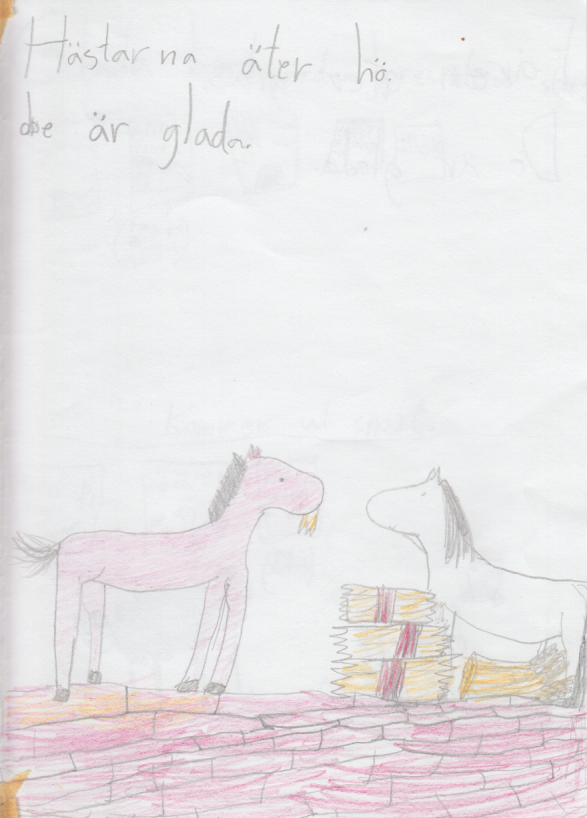 Hästarna äter hö.
de är glada.